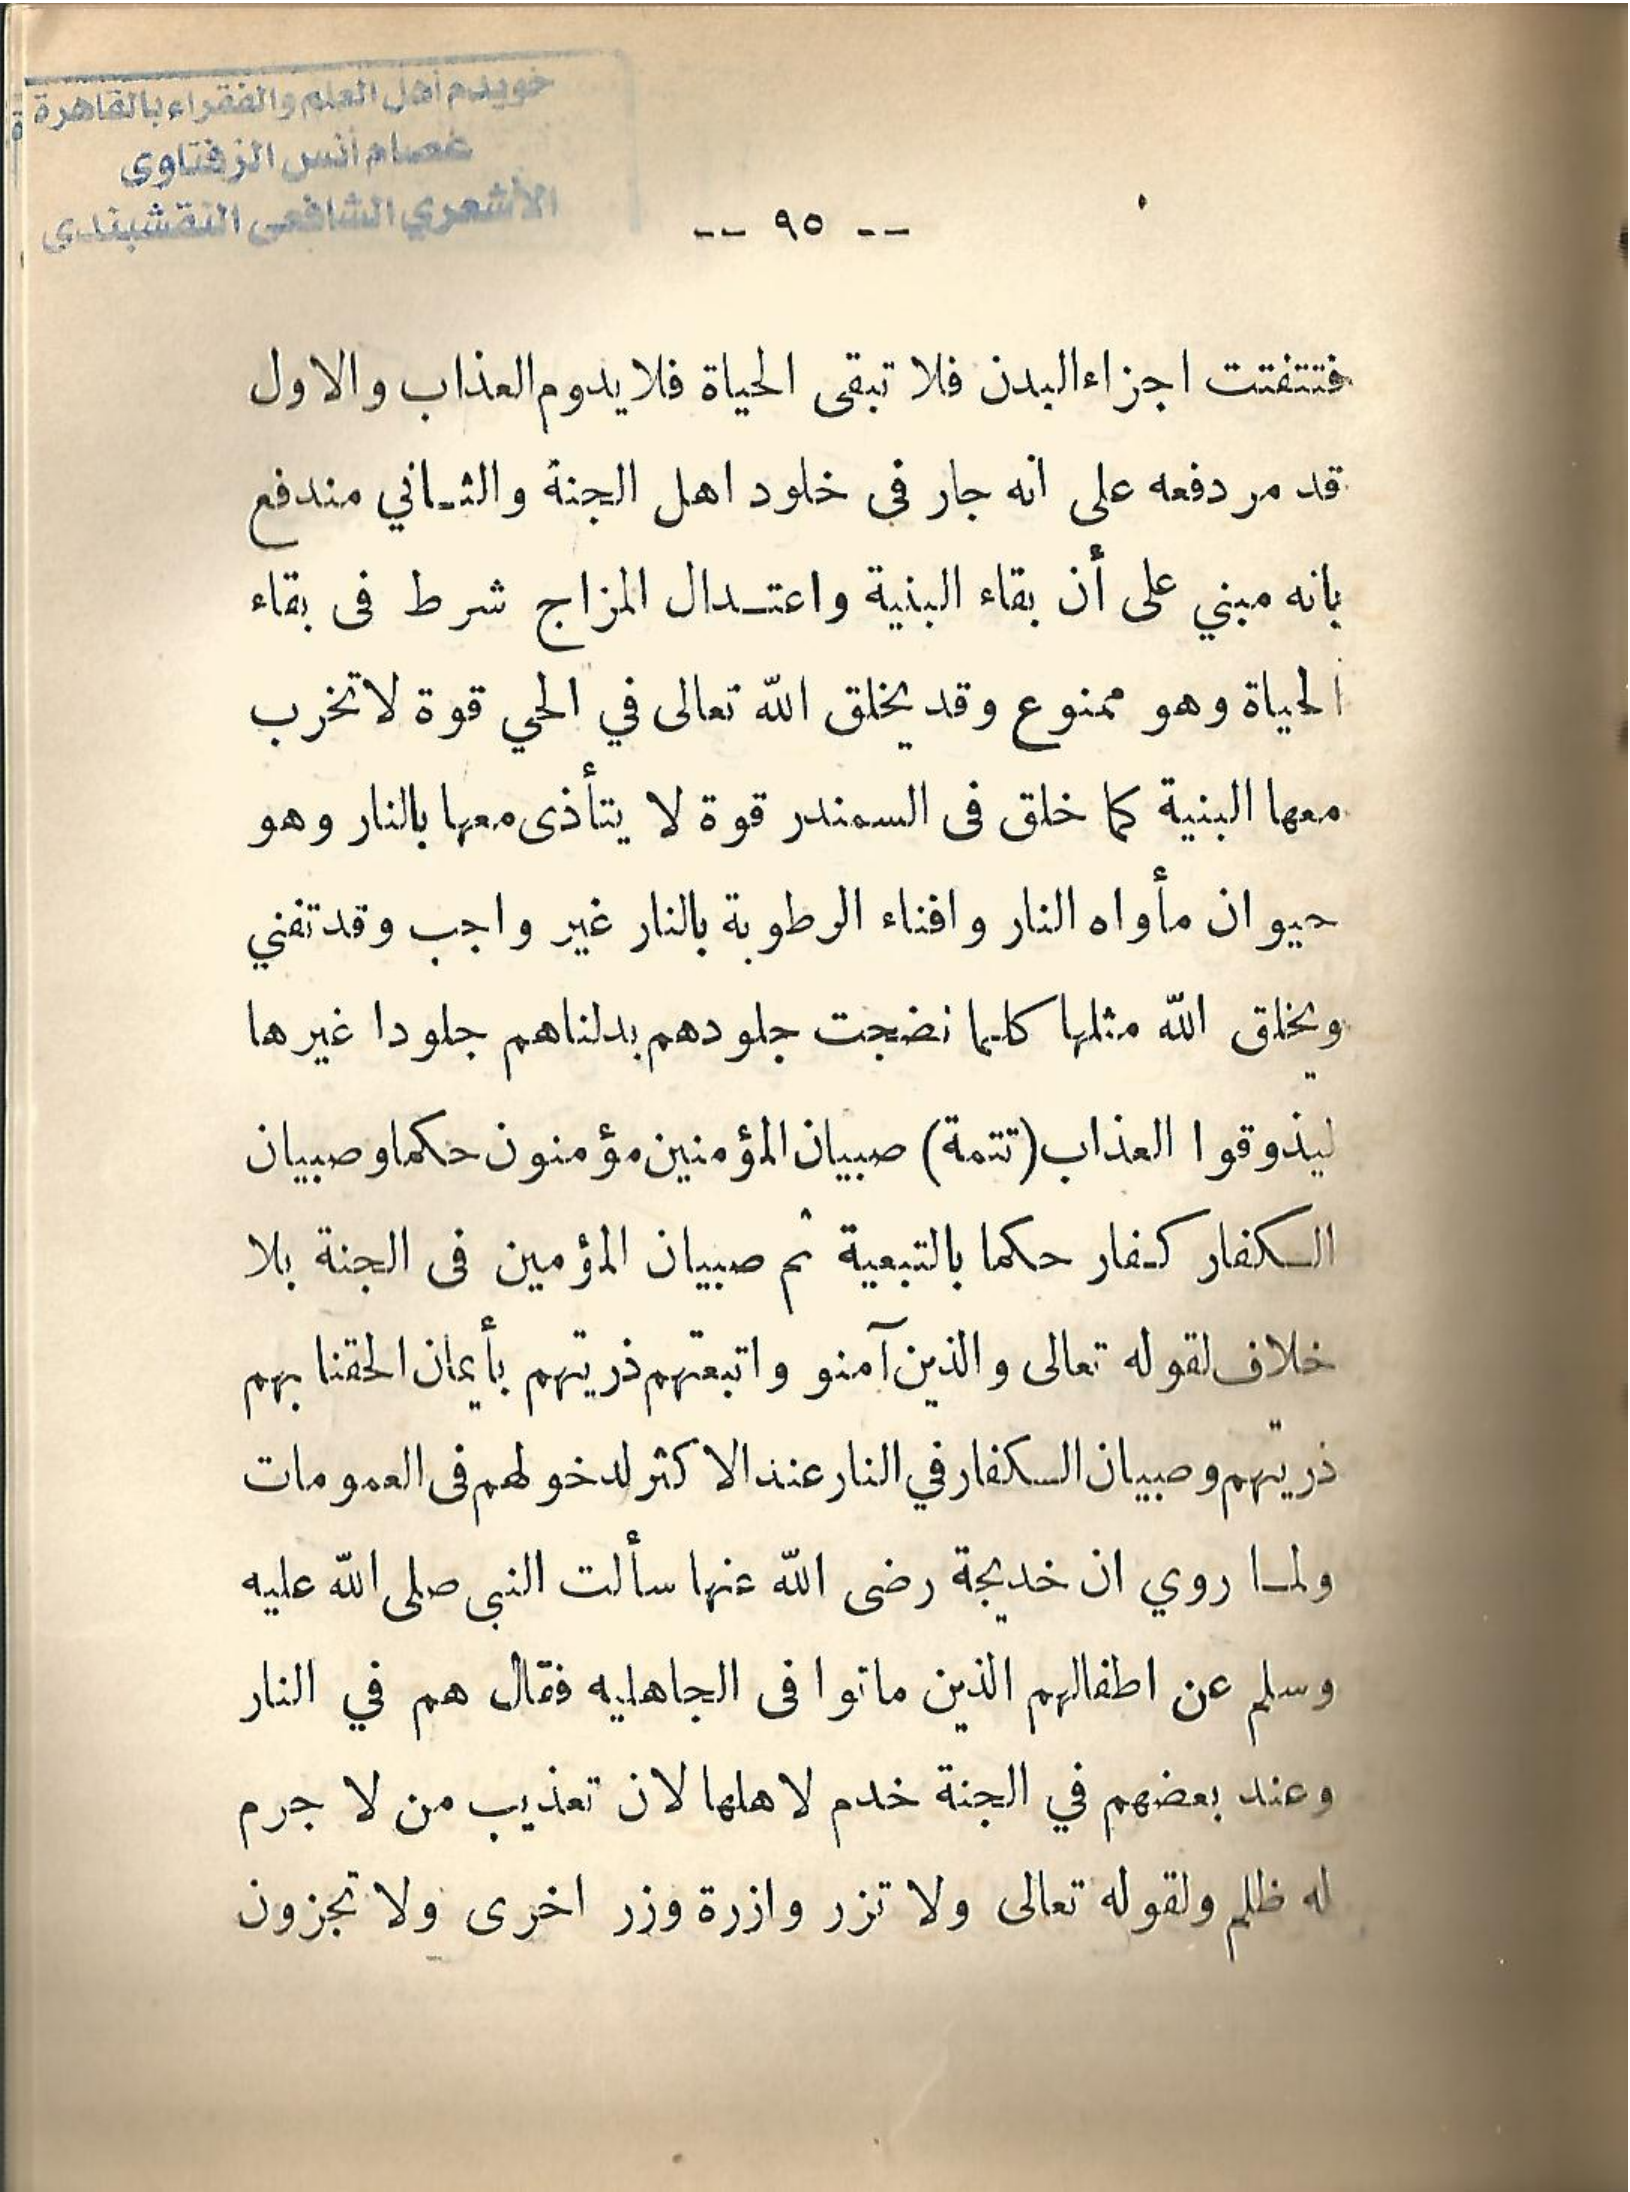 خويدم أهل العلم والفقراء بالقاهرة
عصام أنس الزفتاوى
الأشعري الشافعى النقشبندي
-- ٩٥ --
فتتفتت اجزاء البدن فلا تبقى الحياة فلا يدوم العذاب والاول
قد مر دفعه على انه جار فى خلود اهل الجنة والثـاني مندفع
بانه مبني على أن بقاء البنية واعتـدال المزاج شرط فى بقاء
الحياة وهو ممنوع وقد يخلق الله تعالى في الحي قوة لا تخرب
معها البنية كما خلق فى السمندر قوة لا يتأذى معها بالنار وهو
حيوان مأواه النار وافناء الرطوبة بالنار غير واجب وقد تفني
ويخلق الله مثلها كلما نضجت جلودهم بدلناهم جلودا غيرها
ليذوقوا العذاب (تتمة) صبيان المؤمنين مؤمنون حكما وصبيان
الـكفار كـفار حكما بالتبعية ثم صبيان المؤمين فى الجنة بلا
خلاف لقوله تعالى والذين آمنو واتبعتهم ذريتهم بأيمان الحقنا بهم
ذريتهم وصبيان الـكفار في النار عند الاكثر لدخولهم فى العمومات
ولمـا روي ان خديجة رضى الله عنها سألت النبي صلى الله عليه
وسلم عن اطفالهم الذين ماتوا فى الجاهليه فقال هم في النار
وعند بعضهم في الجنة خدم لاهلها لان تعذيب من لا جرم
له ظلم ولقوله تعالى ولا تزر وازرة وزر اخرى ولا تجزون